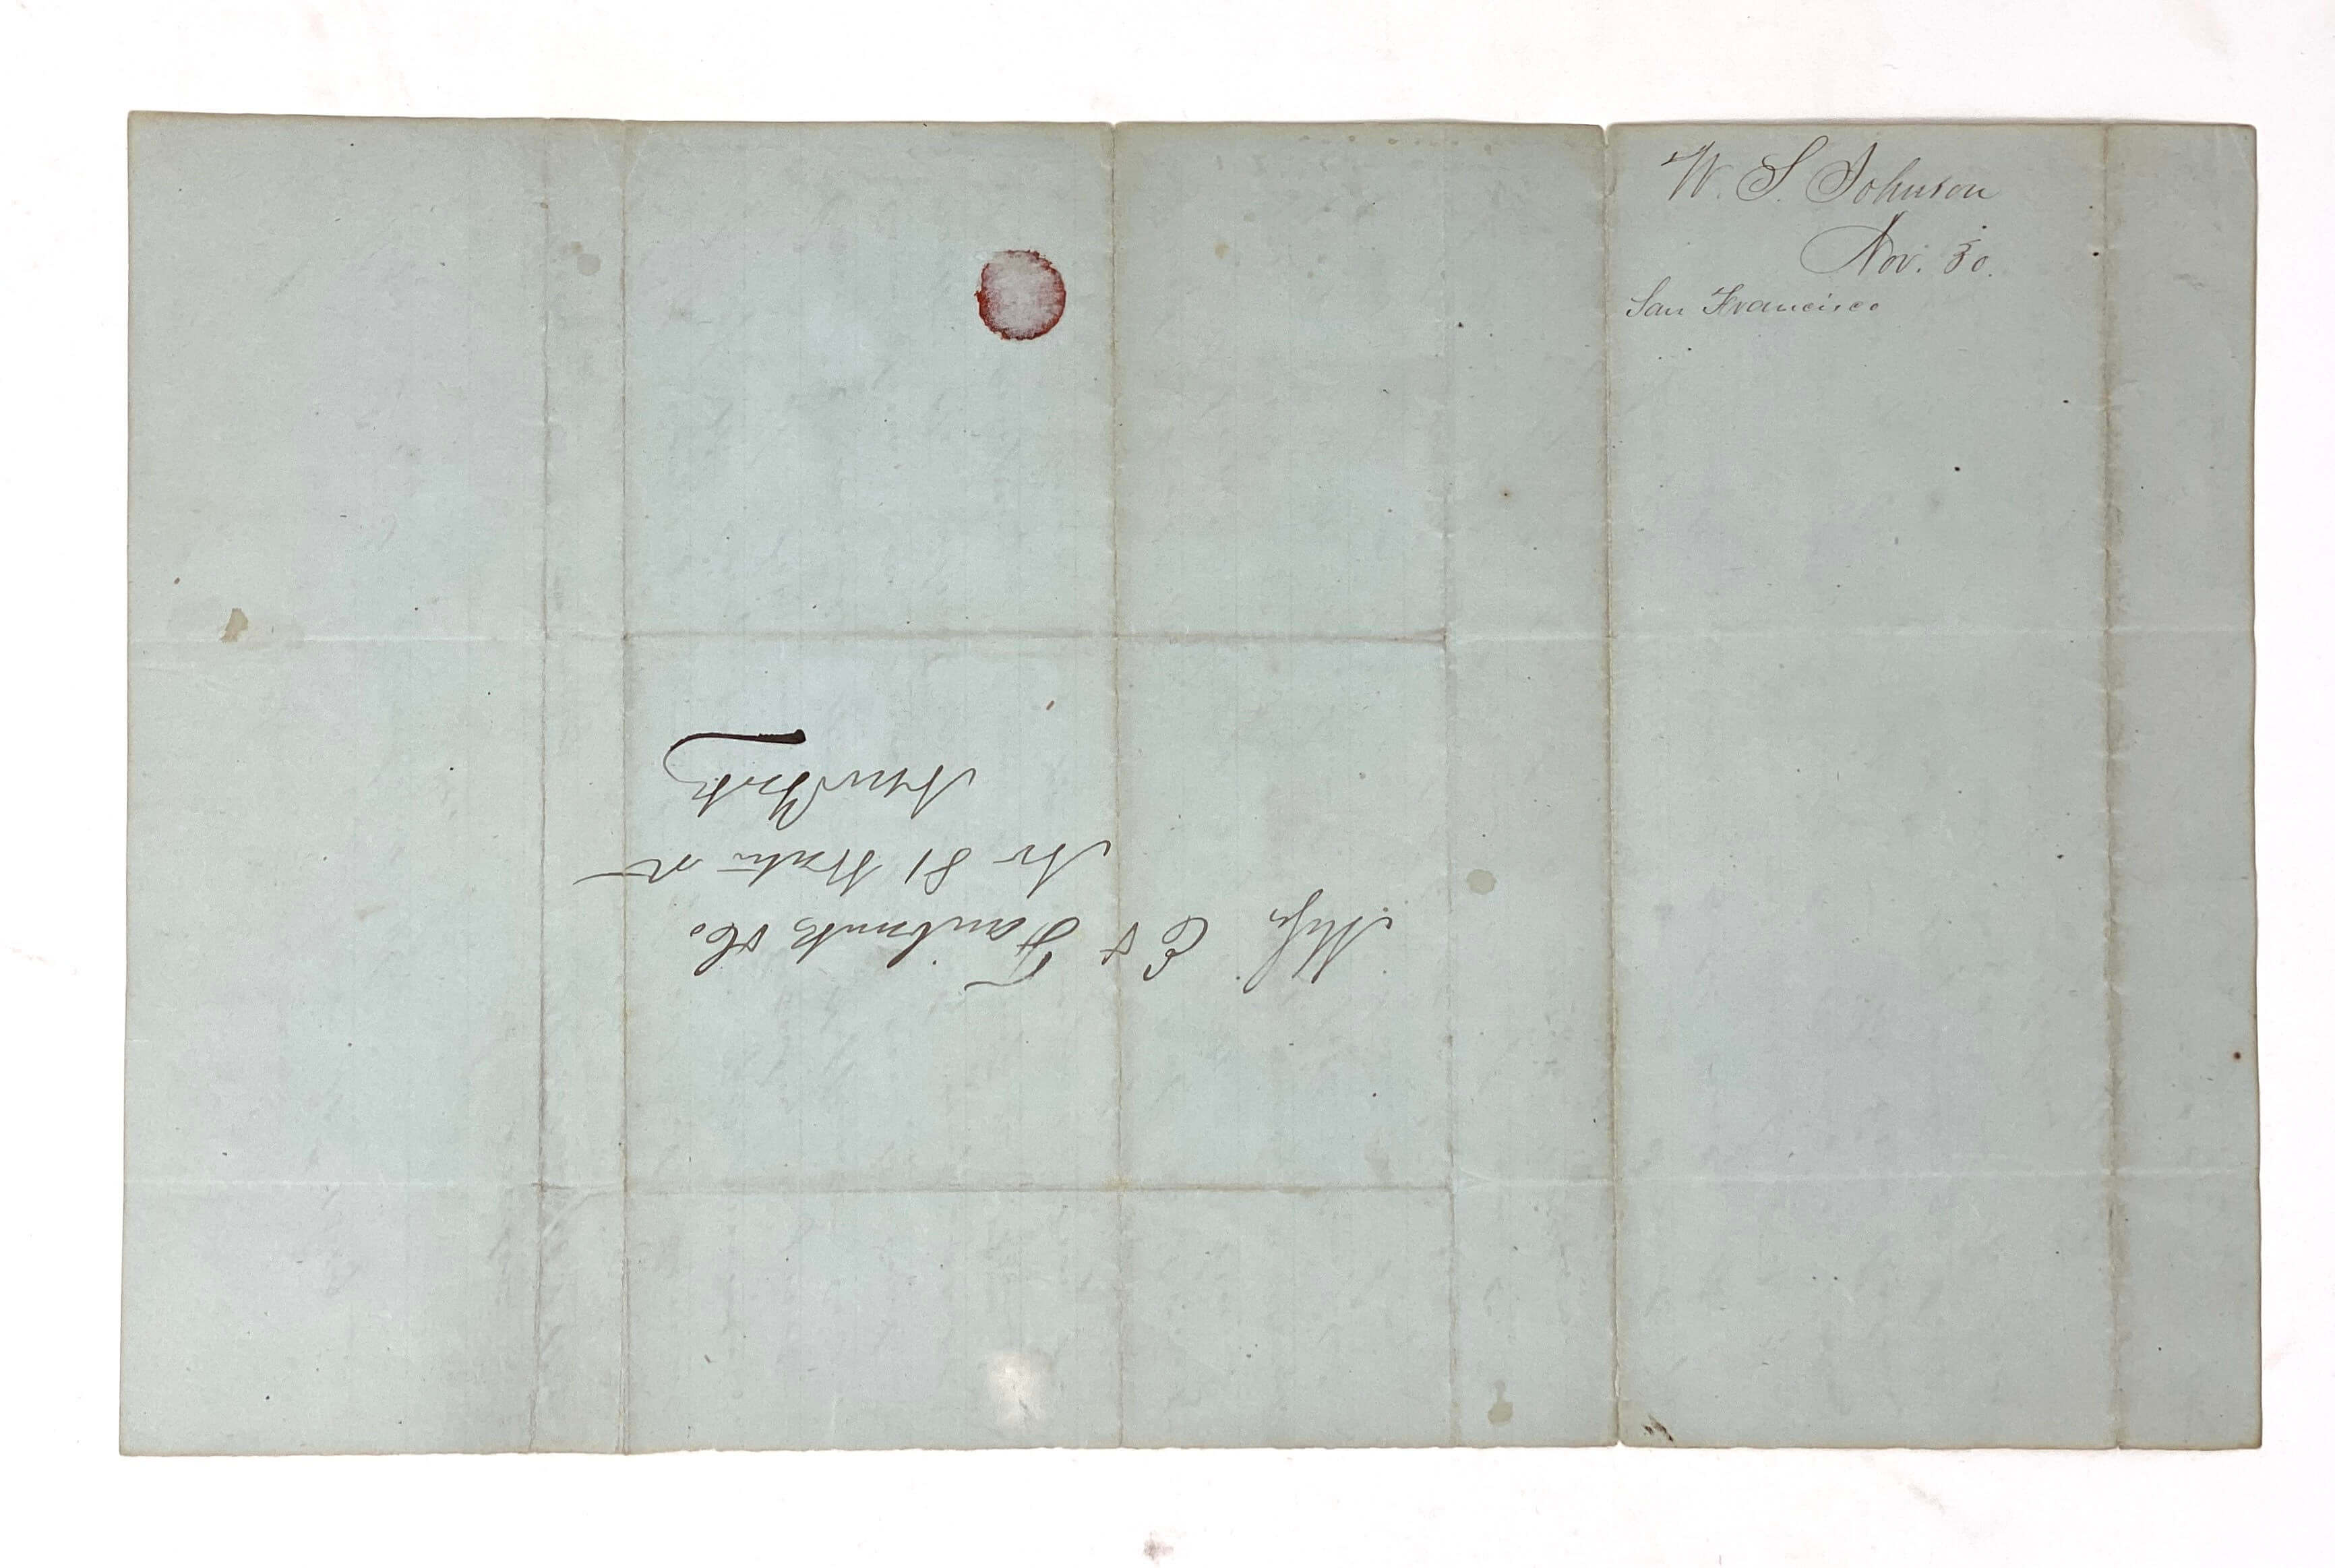 W. S. Johnson
Nov. 30.
San Francisco
Messrs E & T Fairbanks & Co
No 81 Water St
New York